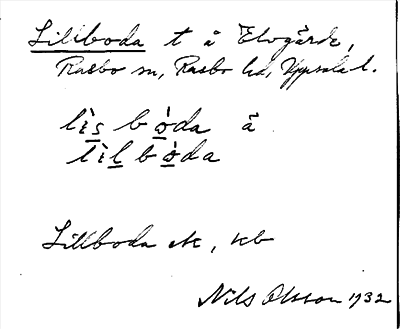 Lillboda t å Elvgärde,
Rasbo sn, Rasbo hd, Uppsala l.
lìs bòda å
lìl bòda
Lillboda ek, kb
Nils Olsson 1932